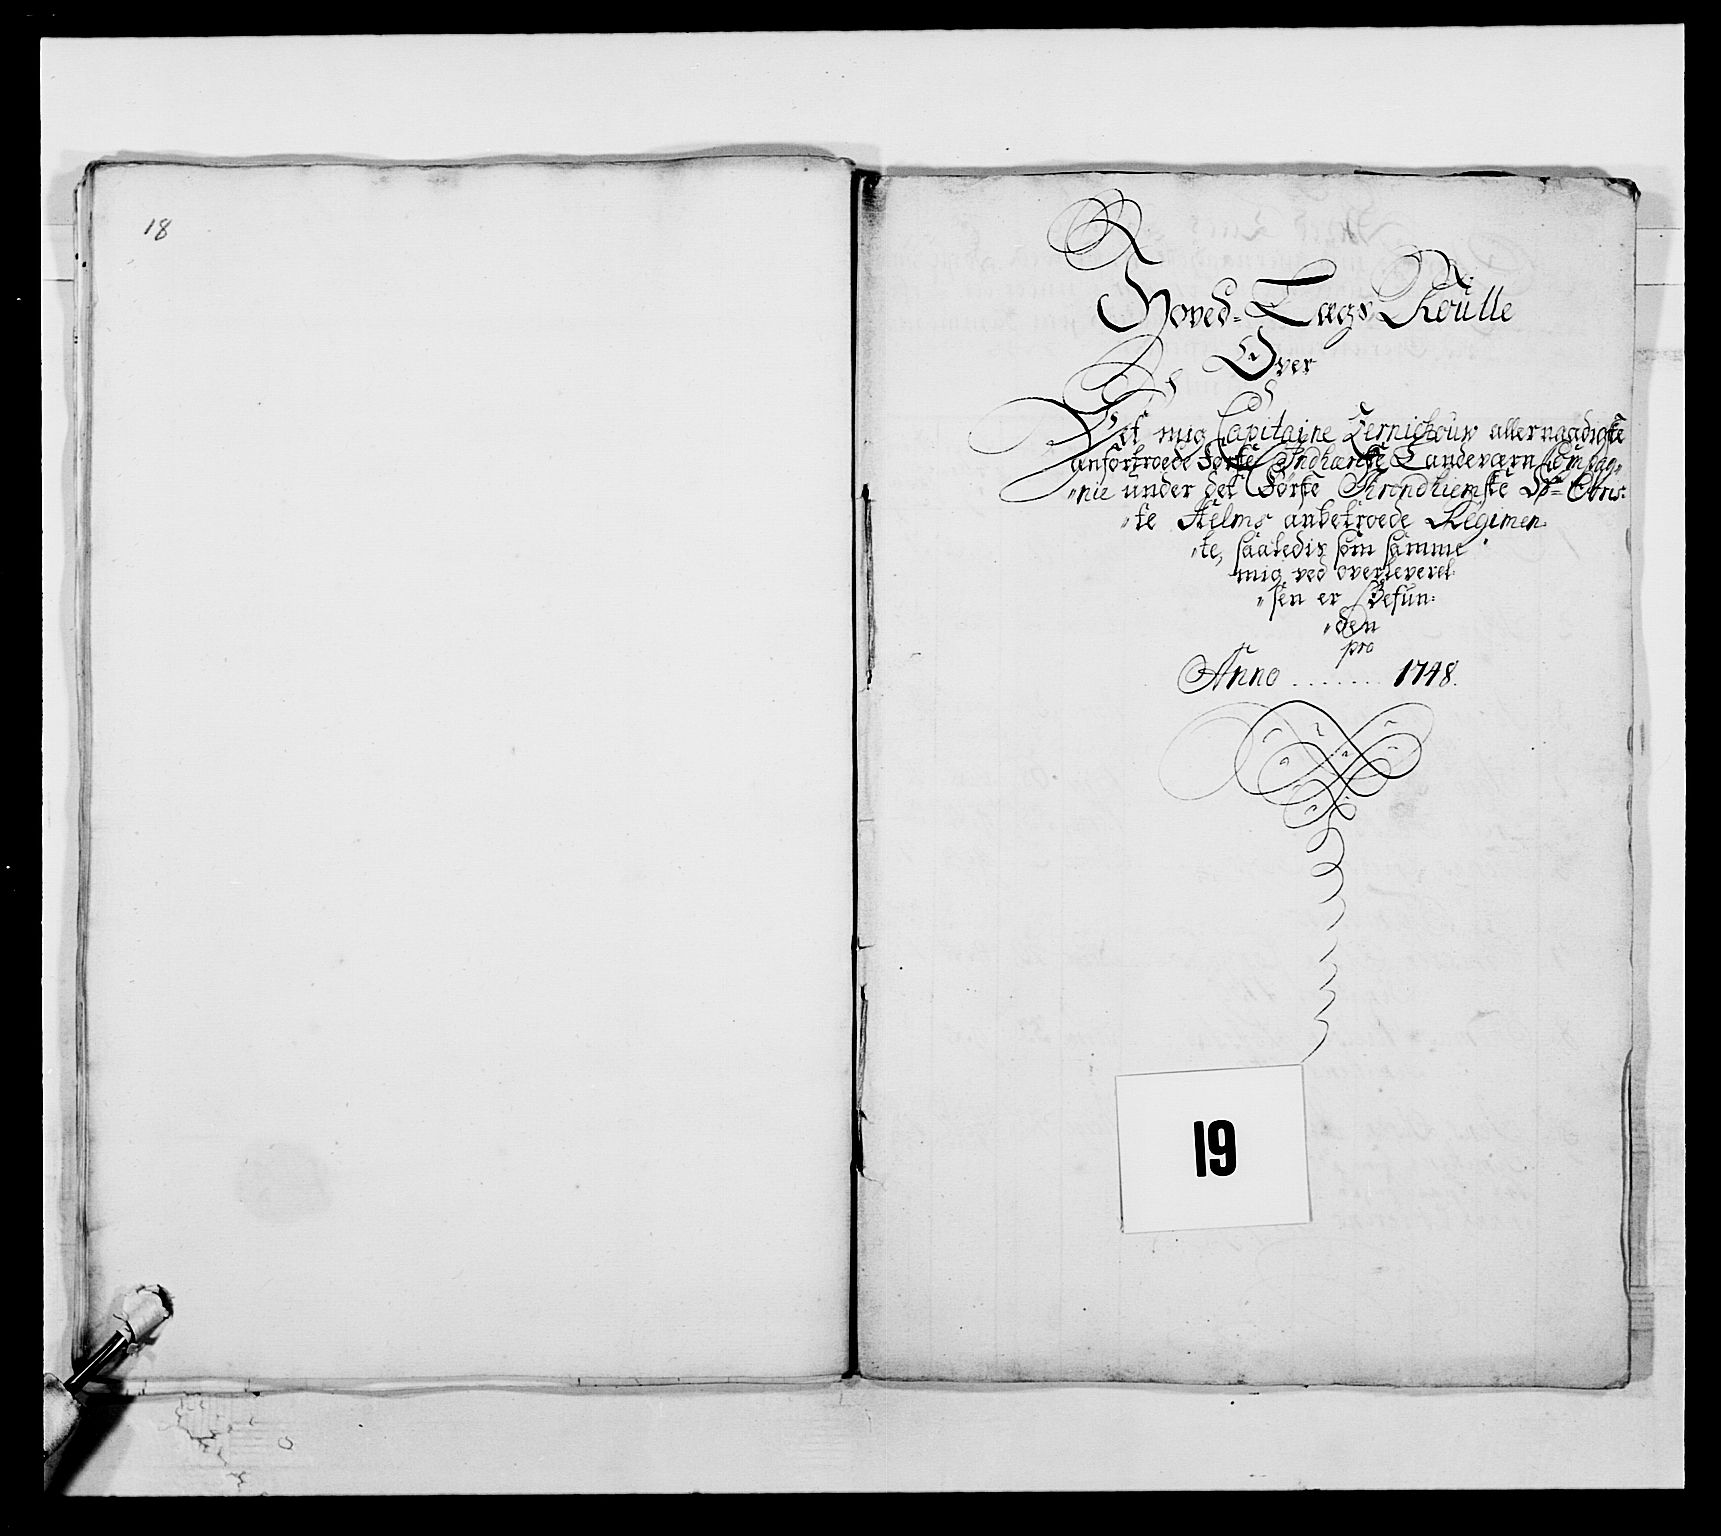 18
Hoved-Lægs Roulle
Over
Det mig Capitaine Zernickouw allernaadigste
anfortroede Første Indhærske Landeværn Compag„
„nie under det Første Throndhiemske Hr Obris:
„te Helms anbetroede Regimen
„te, saaledis som samme
mig ved overleverel
„sen er Befun:
„den
pro
Anno ....... 1748.
19